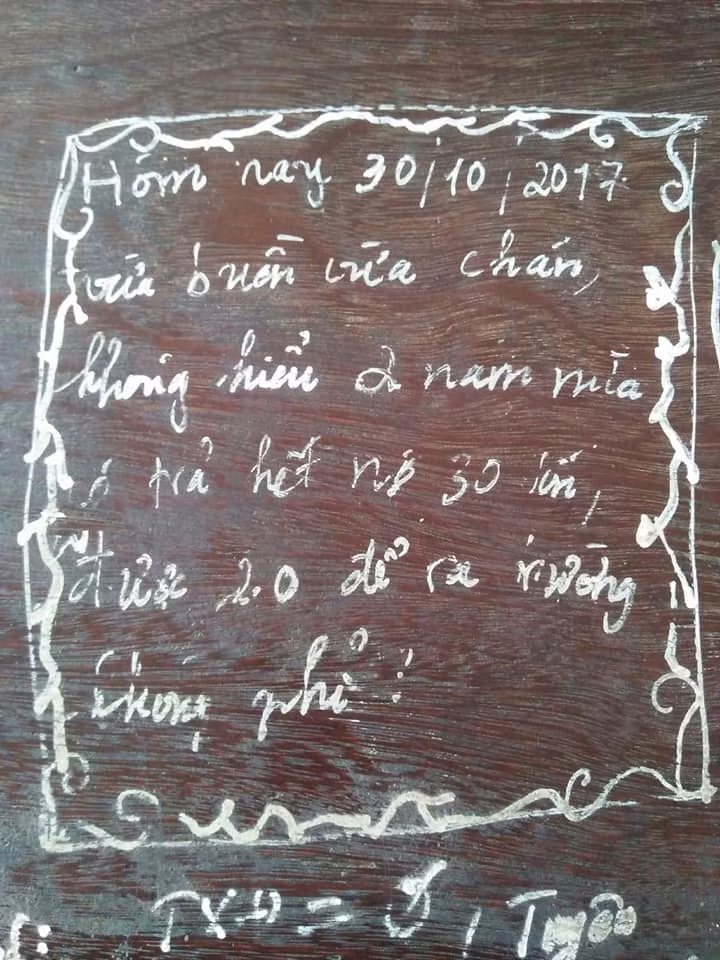 Hôm nay 30/10/2017
vừa buồn vừa chán,
không hiểu 2 năm nữa
có trả hết nợ 30 tín,
được 2.0 để ra trường
không nhỉ?
TXD =